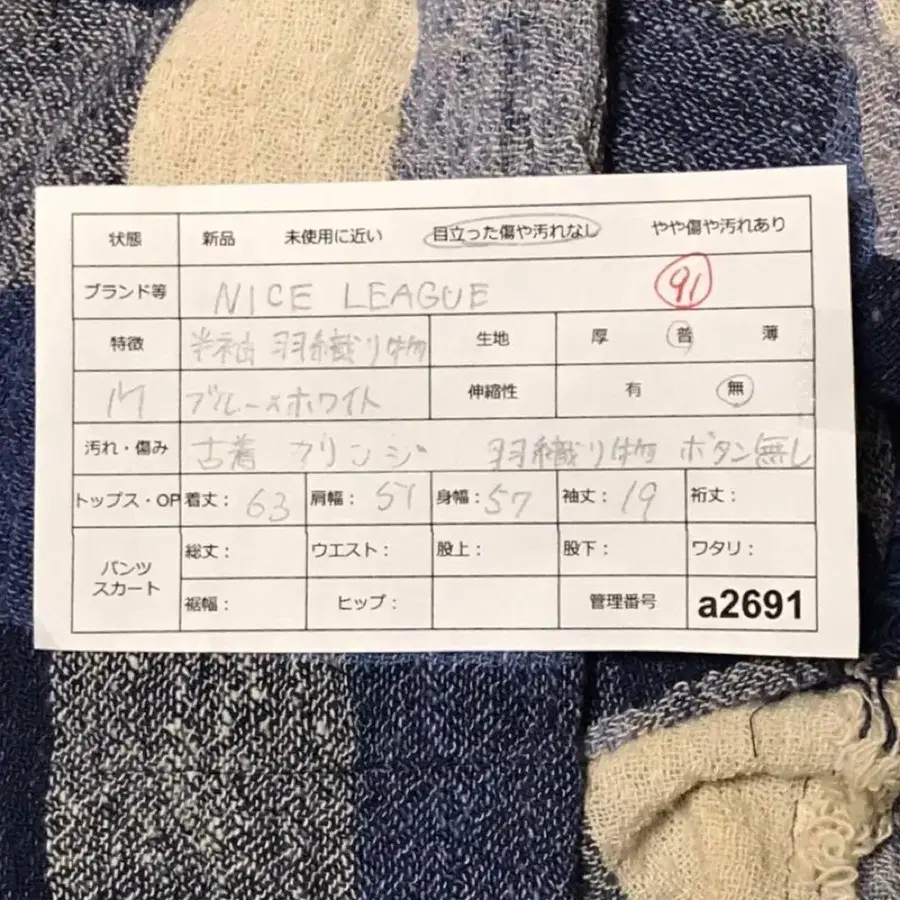 状態 新品 未使用に近い 目立った傷や汚れなし やや傷や汚れあり
ブランド等 NICE LEAGUE 91
特徴 半袖 羽織り物 生地 厚 普 薄
M ブルー×ホワイト 伸縮性 有 無
汚れ・傷み 古着 フリンジ 羽織り物 ボタン無し
トップス・OP 着丈: 63 肩幅: 51 身幅: 57 袖丈: 19 裄丈:
パンツ スカート 総丈: ウエスト: 股上: 股下: ワタリ:
裾幅: ヒップ: 管理番号 a2691